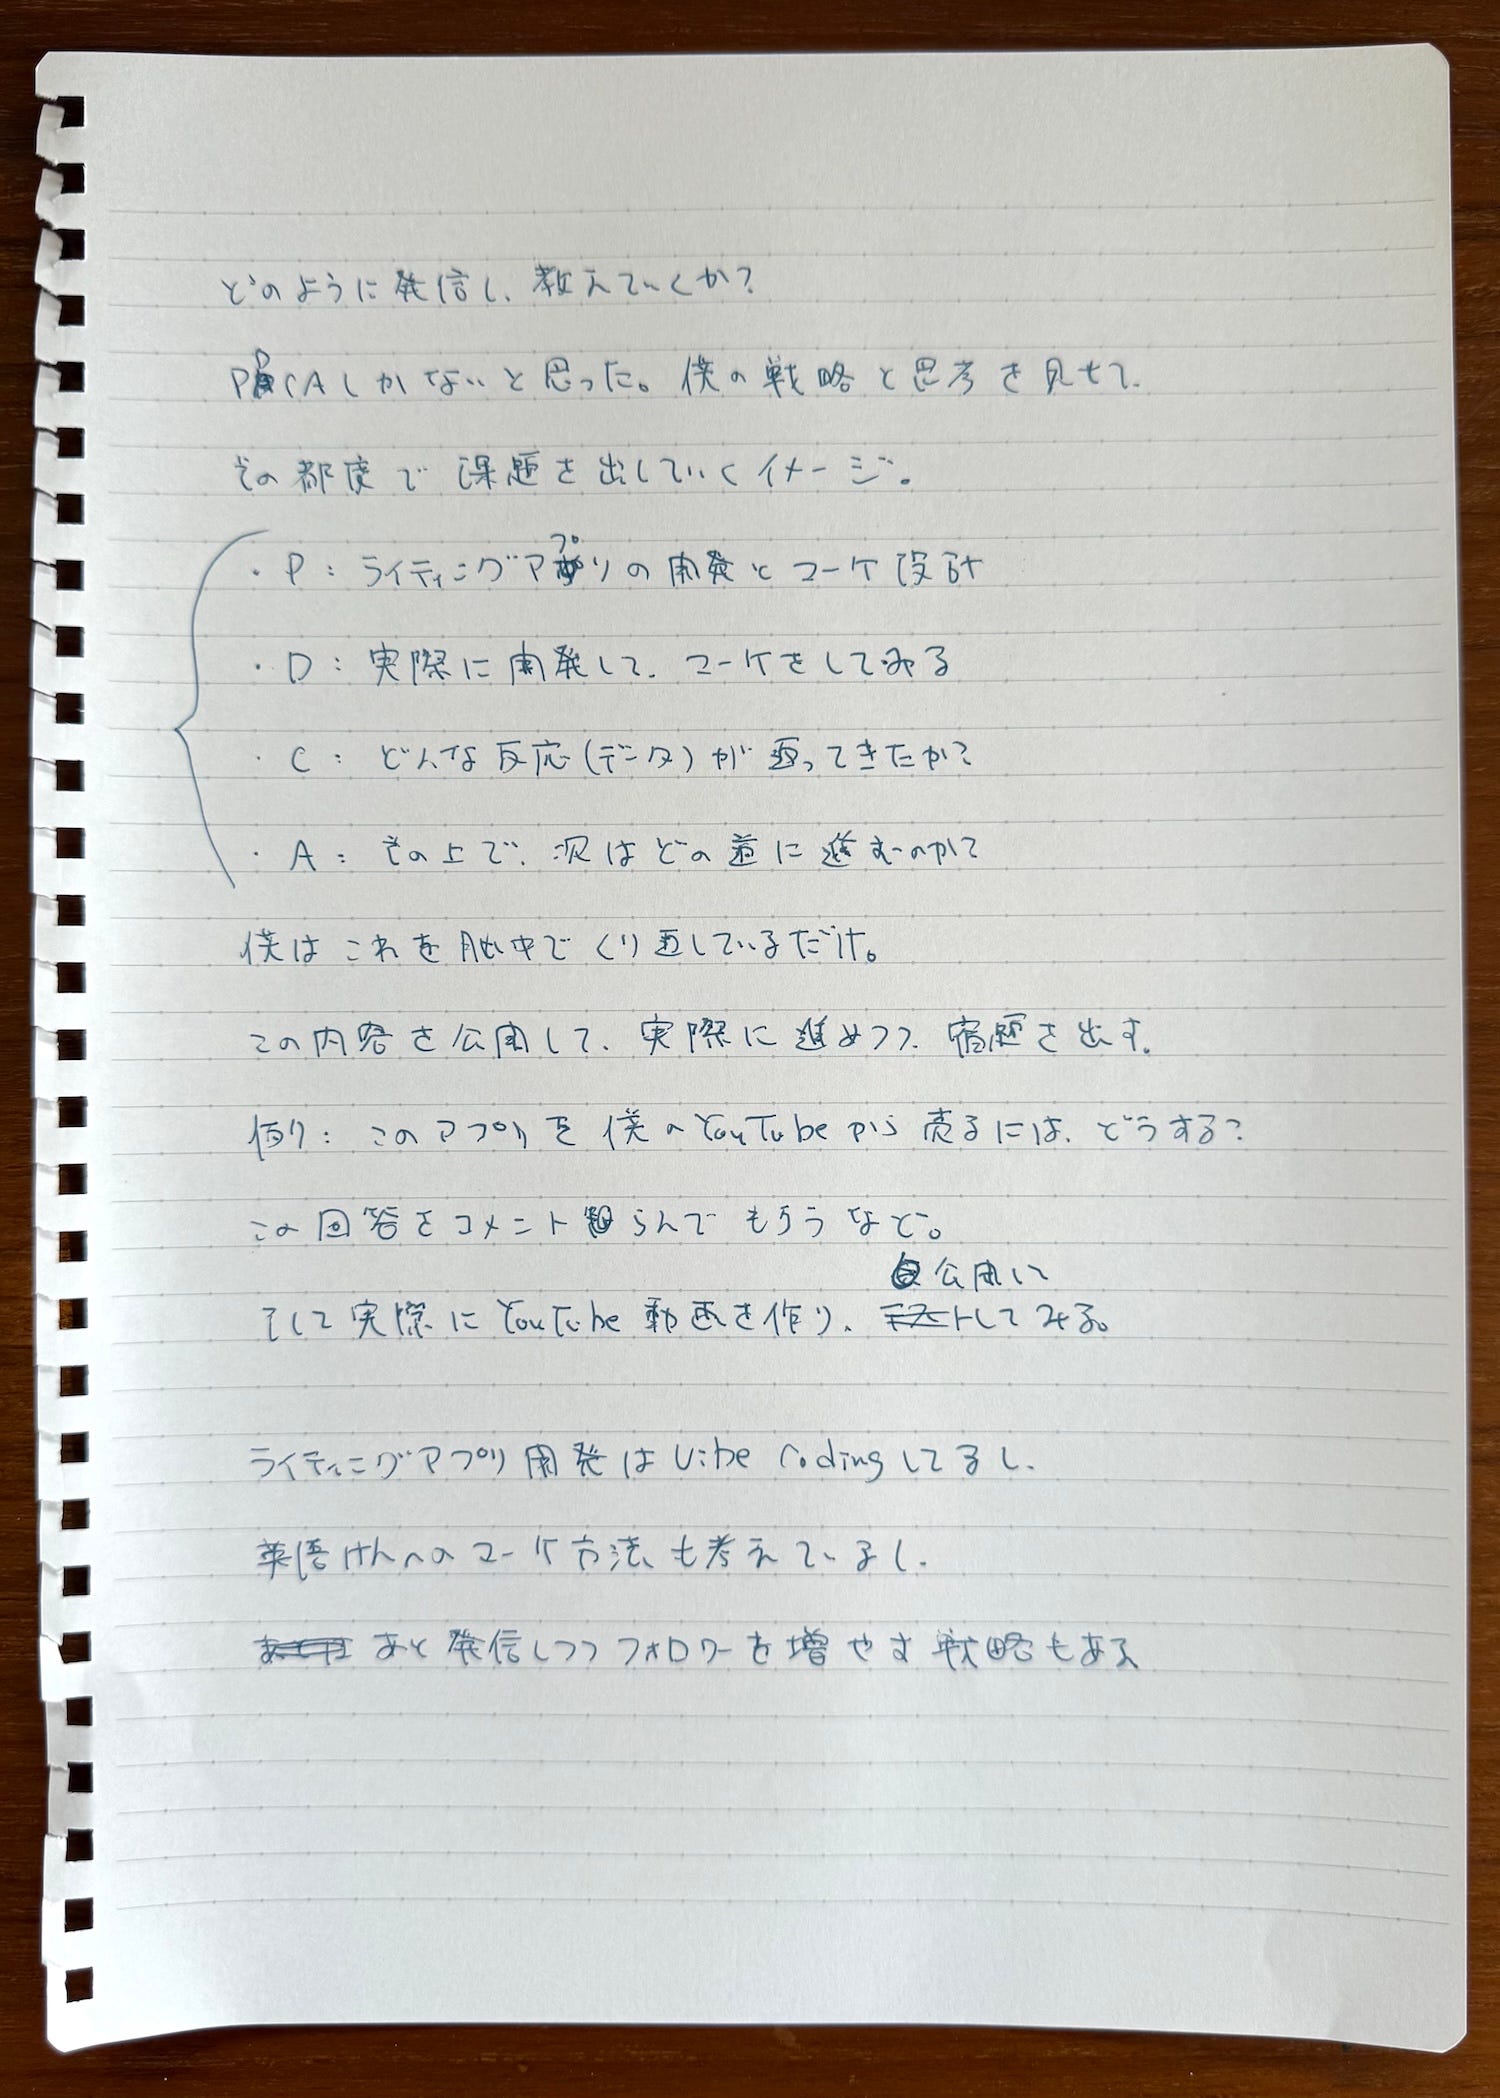 どのように発信し、教えていくか?
PDCAしかないと思った。僕の戦略と思考を見せて、
その都度で課題を出していくイメージ。
・P:ライティングアプリの開発とマーケ設計
・D:実際に開発して、マーケをしてみる
・C:どんな反応(データ)が返ってきたか?
・A:その上で、次はどの道に進むのか?
僕はこれを脳中でくり返しているだけ。
この内容を公開して、実際に進めつつ、宿題を出す。
例:このアプリを僕のYouTubeから売るには、どうする?
この回答をコメントらんでもらうなど。
公開して
そして実際にYouTube動画を作り、してみる。
ライティングアプリ開発はVibe Codingしてるし、
英語けんへのマーケ方法も考えているし、
あと発信しつつフォロワーを増やす戦略もある